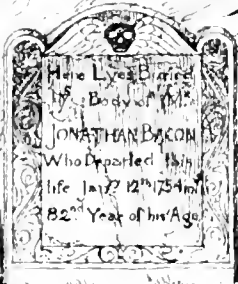 Here Lyes Buried
yᵉ Body of Mʳ
JONATHAN BACON
Who Departed this
life Janʸ yᵉ 12ᵗʰ 1754 in yᵉ
82ⁿᵈ Year of his Age